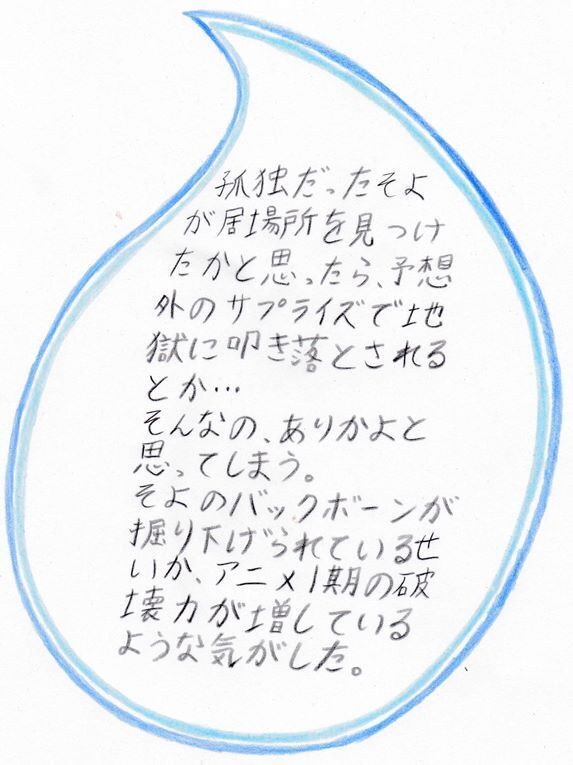 孤独だったそよ
が居場所を見つけ
たかと思ったら、予想
外のサプライズで地
獄に叩き落とされる
とか…
そんなの、ありかよと
思ってしまう。
そよのバックボーンが
掘り下げられているせ
いか、アニメ1期の破
壊力が増している
ような気がした。